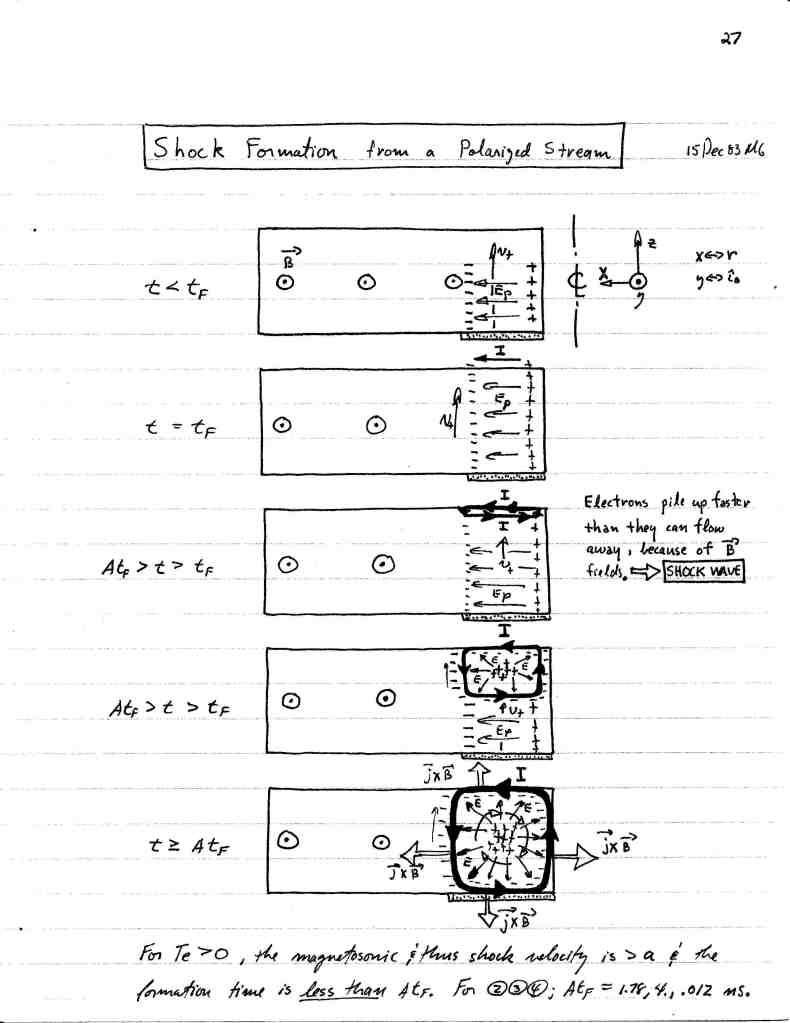 27
Shock Formation from a Polarized Stream
15 Dec 83 MG
t < t_F
B⃗
v₊
E_p
- - - - -
+ + + + +
₵
z
X
y
x↔r
y↔i_θ
I
t = t_F
v₊
E_p
I
I
At_F > t > t_F
v₊
E_p
Electrons pile up faster
than they can flow
away, because of B⃗
fields. ⇒ SHOCK WAVE
I
At_F > t > t_F
E E
E E
v₊
E_p
j⃗×B⃗ I
t ≥ At_F
E E
E
j⃗×B⃗ j⃗×B⃗
j⃗×B⃗
For Te > 0, the magnetosonic & thus shock velocity is > a & the
formation time is less than At_F. For ②③④; At_F = 1.78, 4., .012 ns.